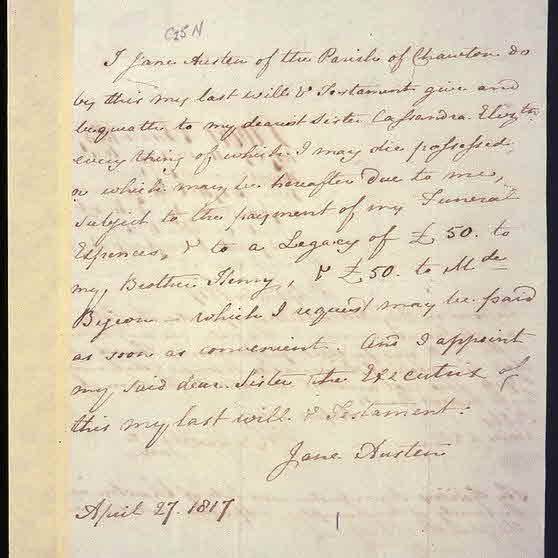 I Jane Austen of the Parish of Chawton do
by this my last will & Testament give and
bequeath to my dearest Sister Cassandra Elizth
every thing of which I may die possessed
or which may be hereafter due to me,
subject to the payment of my Funeral
Expences, & to a Legacy of £50. to
my Brother Henry, & £50. to Mde
Bigeon – which I request may be paid
as soon as convenient. And I appoint
my said dear Sister the Executrix of
this my last will & Testament.
Jane Austen
April 27. 1817